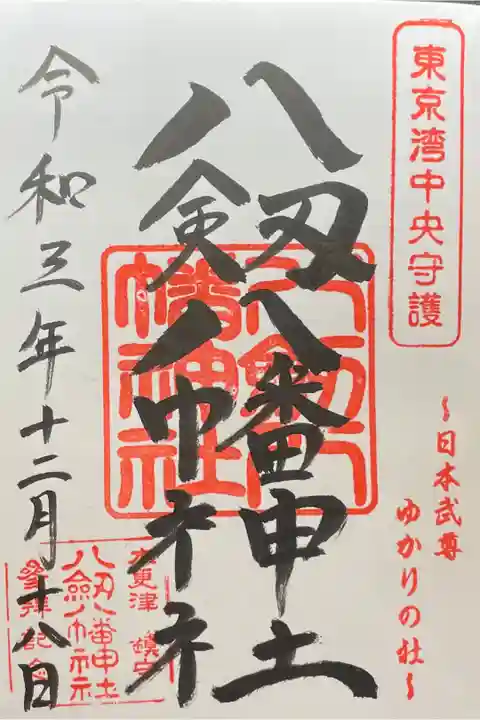 東京湾中央守護
〜日本武尊
ゆかりの社〜
八剱八幡神社
八剱八幡神社
令和三年十二月十八日
木更津 鎮守
八劔八幡神社
参拝記念